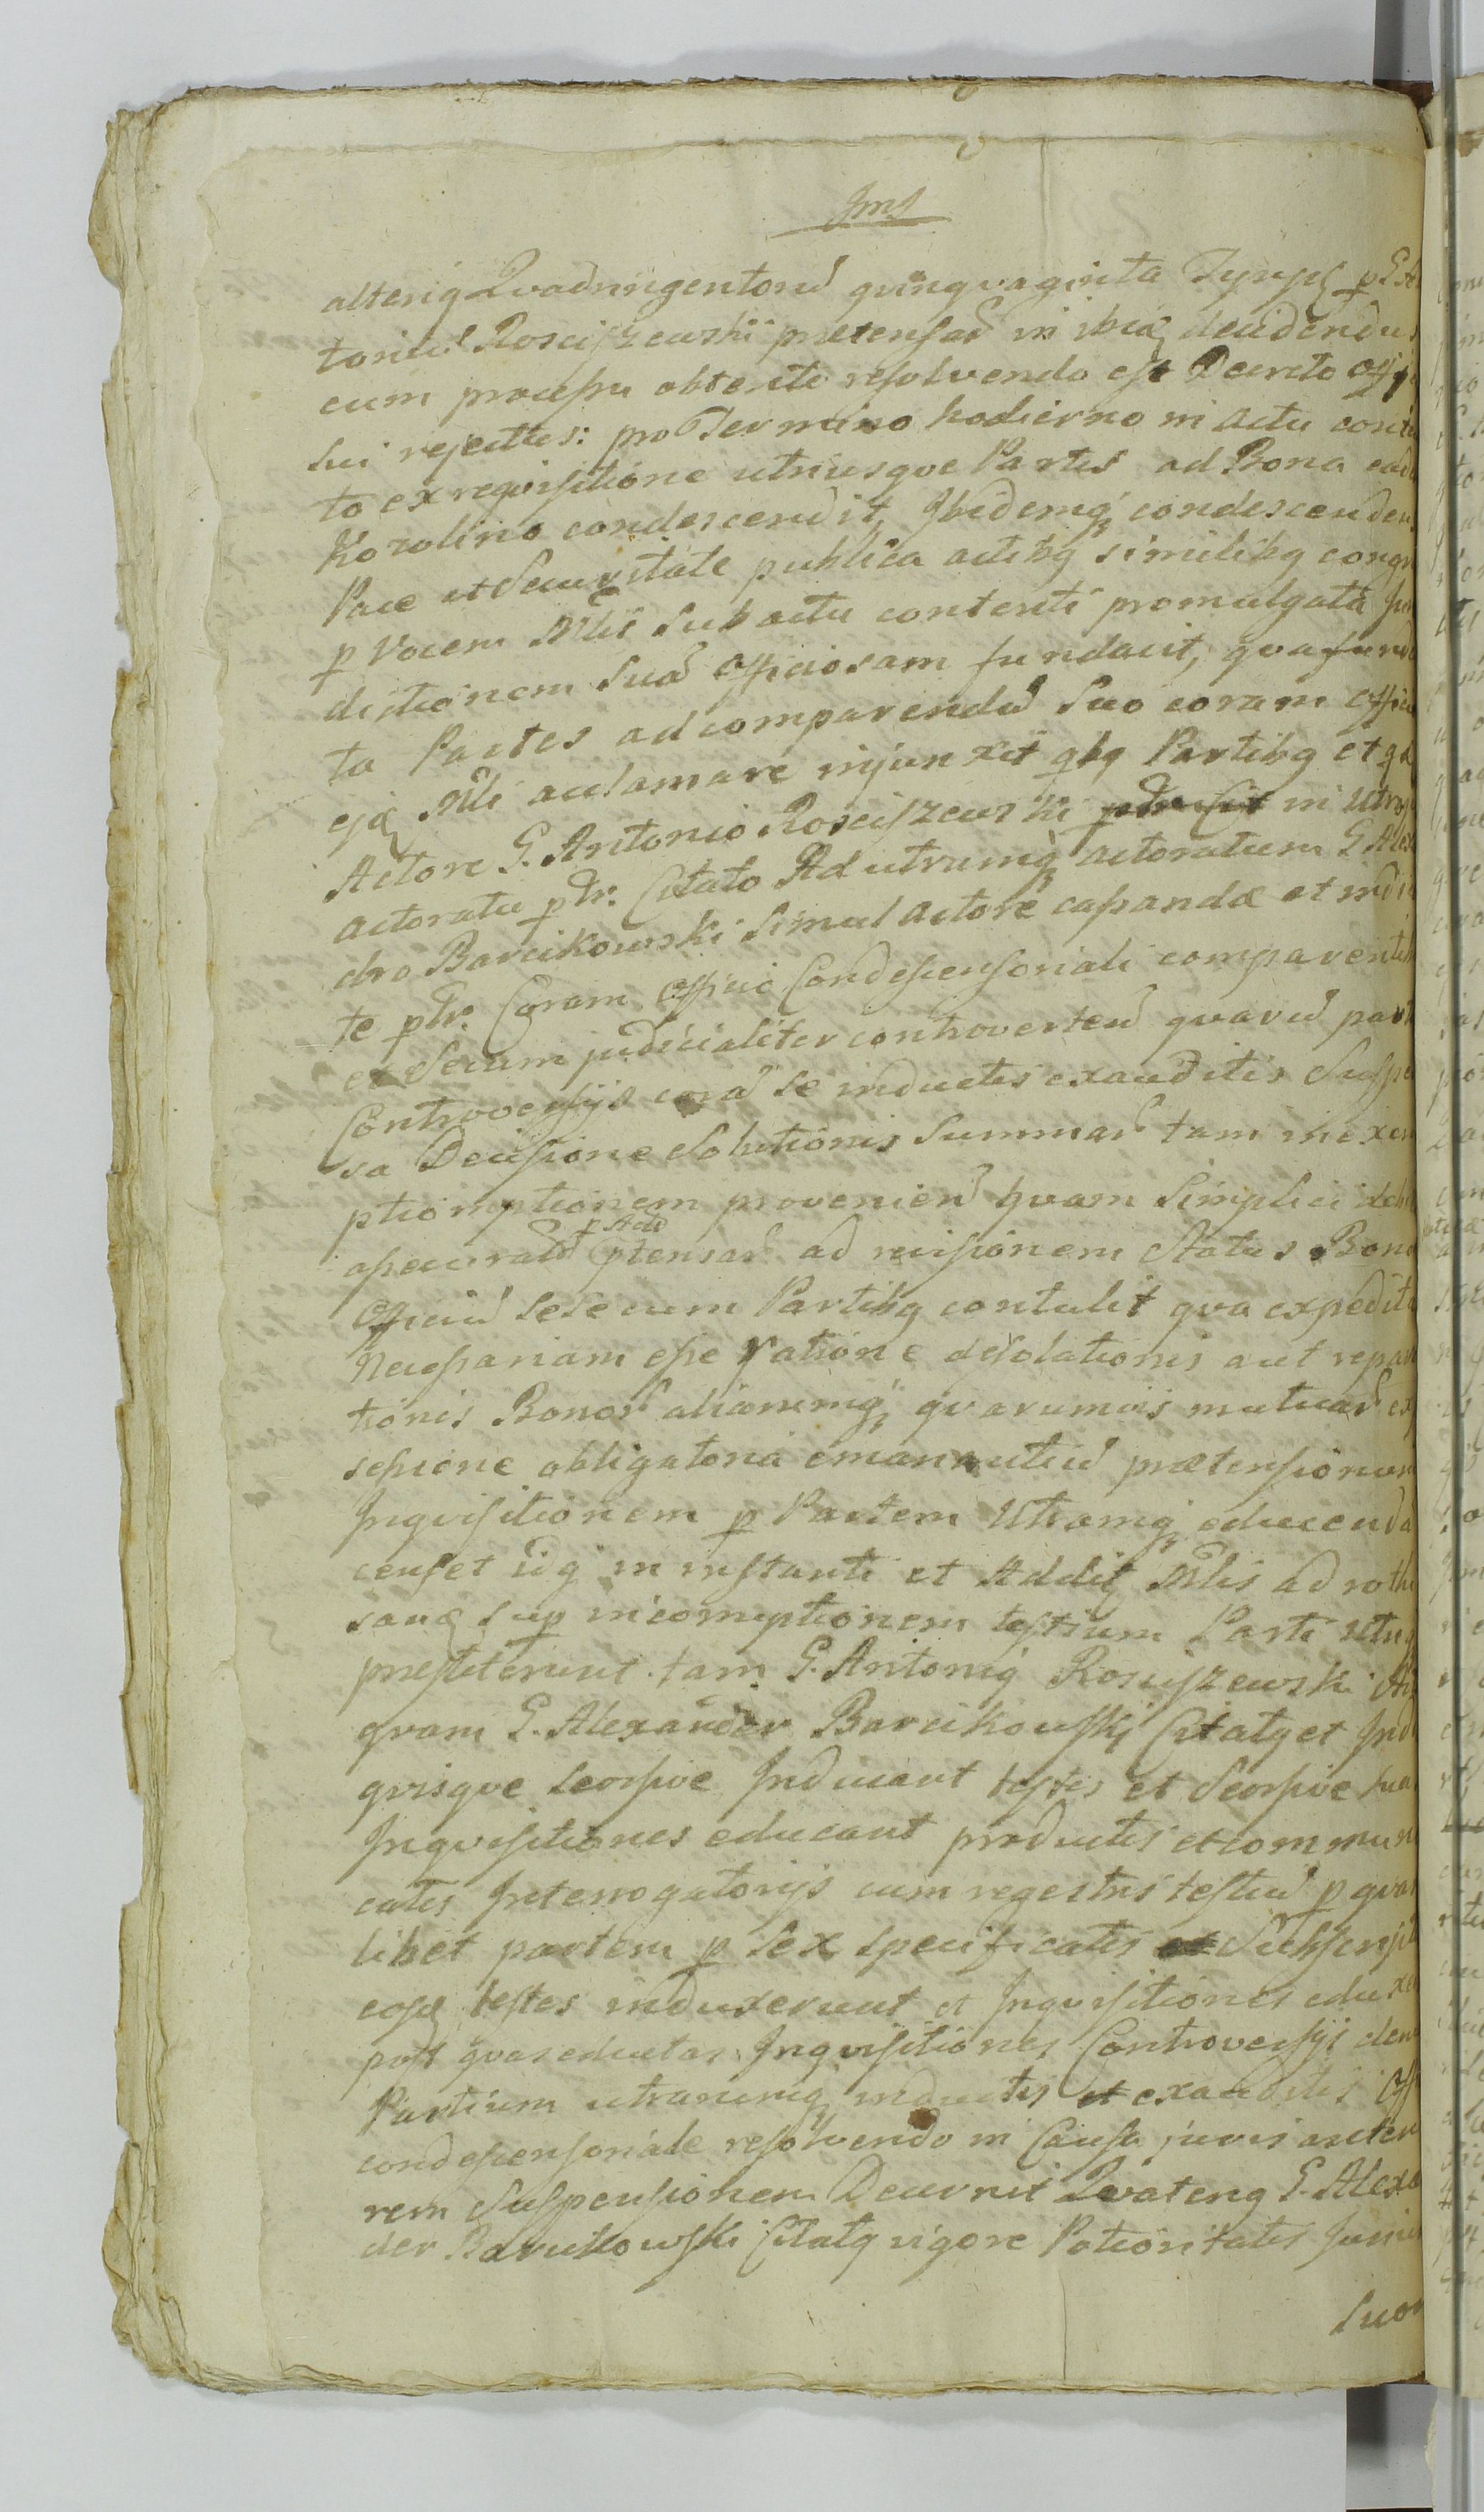 Jms
alterig Qvadringentorũ qvinqvaginta Tynph p G. A
toniũ Rosciszewski prætensar in decidendu
cum processu obtenti resolvendo est Decreto offi
sui rejectis: pro Termino hodierno in actu conten
to ex reqvisitione utriusqve Partis ad Bona ead
Korolino condescendit, Ibidemq condescenden
Pace et Securitate publica actibq similibq congru
p Vocem Mlis sub actu contenti promulgata Juri
dictionem suã officiosam fundavit, qva funda
ta Partes ad comparendũ suo coram officio
ejq Mli acclamare injunxit qbq Partibq et qd
Actore G. Antonio Rosciszewski in utroq
actoratu ptr. Citato Ad utrumq actoratum G Alexan
dro Barcikowski simul actore cassandæ et indu
te ptr. Coram officio Condescensoriali comparentib
et secum judicialiter controverten qvarũ part
Controversijs corã se inductis exauditis Suspen
sa Decisione Solutionis Summar tam in exem
ptionem provenien qvam simplici debi
p Acto
assecurat ptensar ad revisionem Status Bono
Officiũ sese cum Partibq contulit qva expedita
Necessariam esse ratione desolationis aut repara
tionis Bonor aliarumq qvarumvis mutuar ex
sessione obligatoria emanantiũ prætensionum
Inqvisitionem p Partem Utramq educenda
censet idq in instanti et Addit Mlis ad roth
sanq sup incorruptionem testium Parti utriq
præstiterunt tam G. Antonig Rosciszewski
qvam G. Alexander Barcikowskj Citatq et Ind
qvisqve seorsive Inducant testes et Seorsive sua
Inqvisitiones educant productis et commun
catis Interrogatorijs cum regestris testiũ p qvam
libet partem p Sex specificatis et
eosq testes induxerunt et Inqvisitiones eduxe
post qvas eductas Inqvisitiones Controversijs den
Partium utrarumq inductis et exauditis Off
condescensoriale resolvendo in Causa juris anterio
rem Suspensionem Decernit Qvatenq G. Alexan
der Barcikowski Citatq vigore Potioritatis Juri
suor